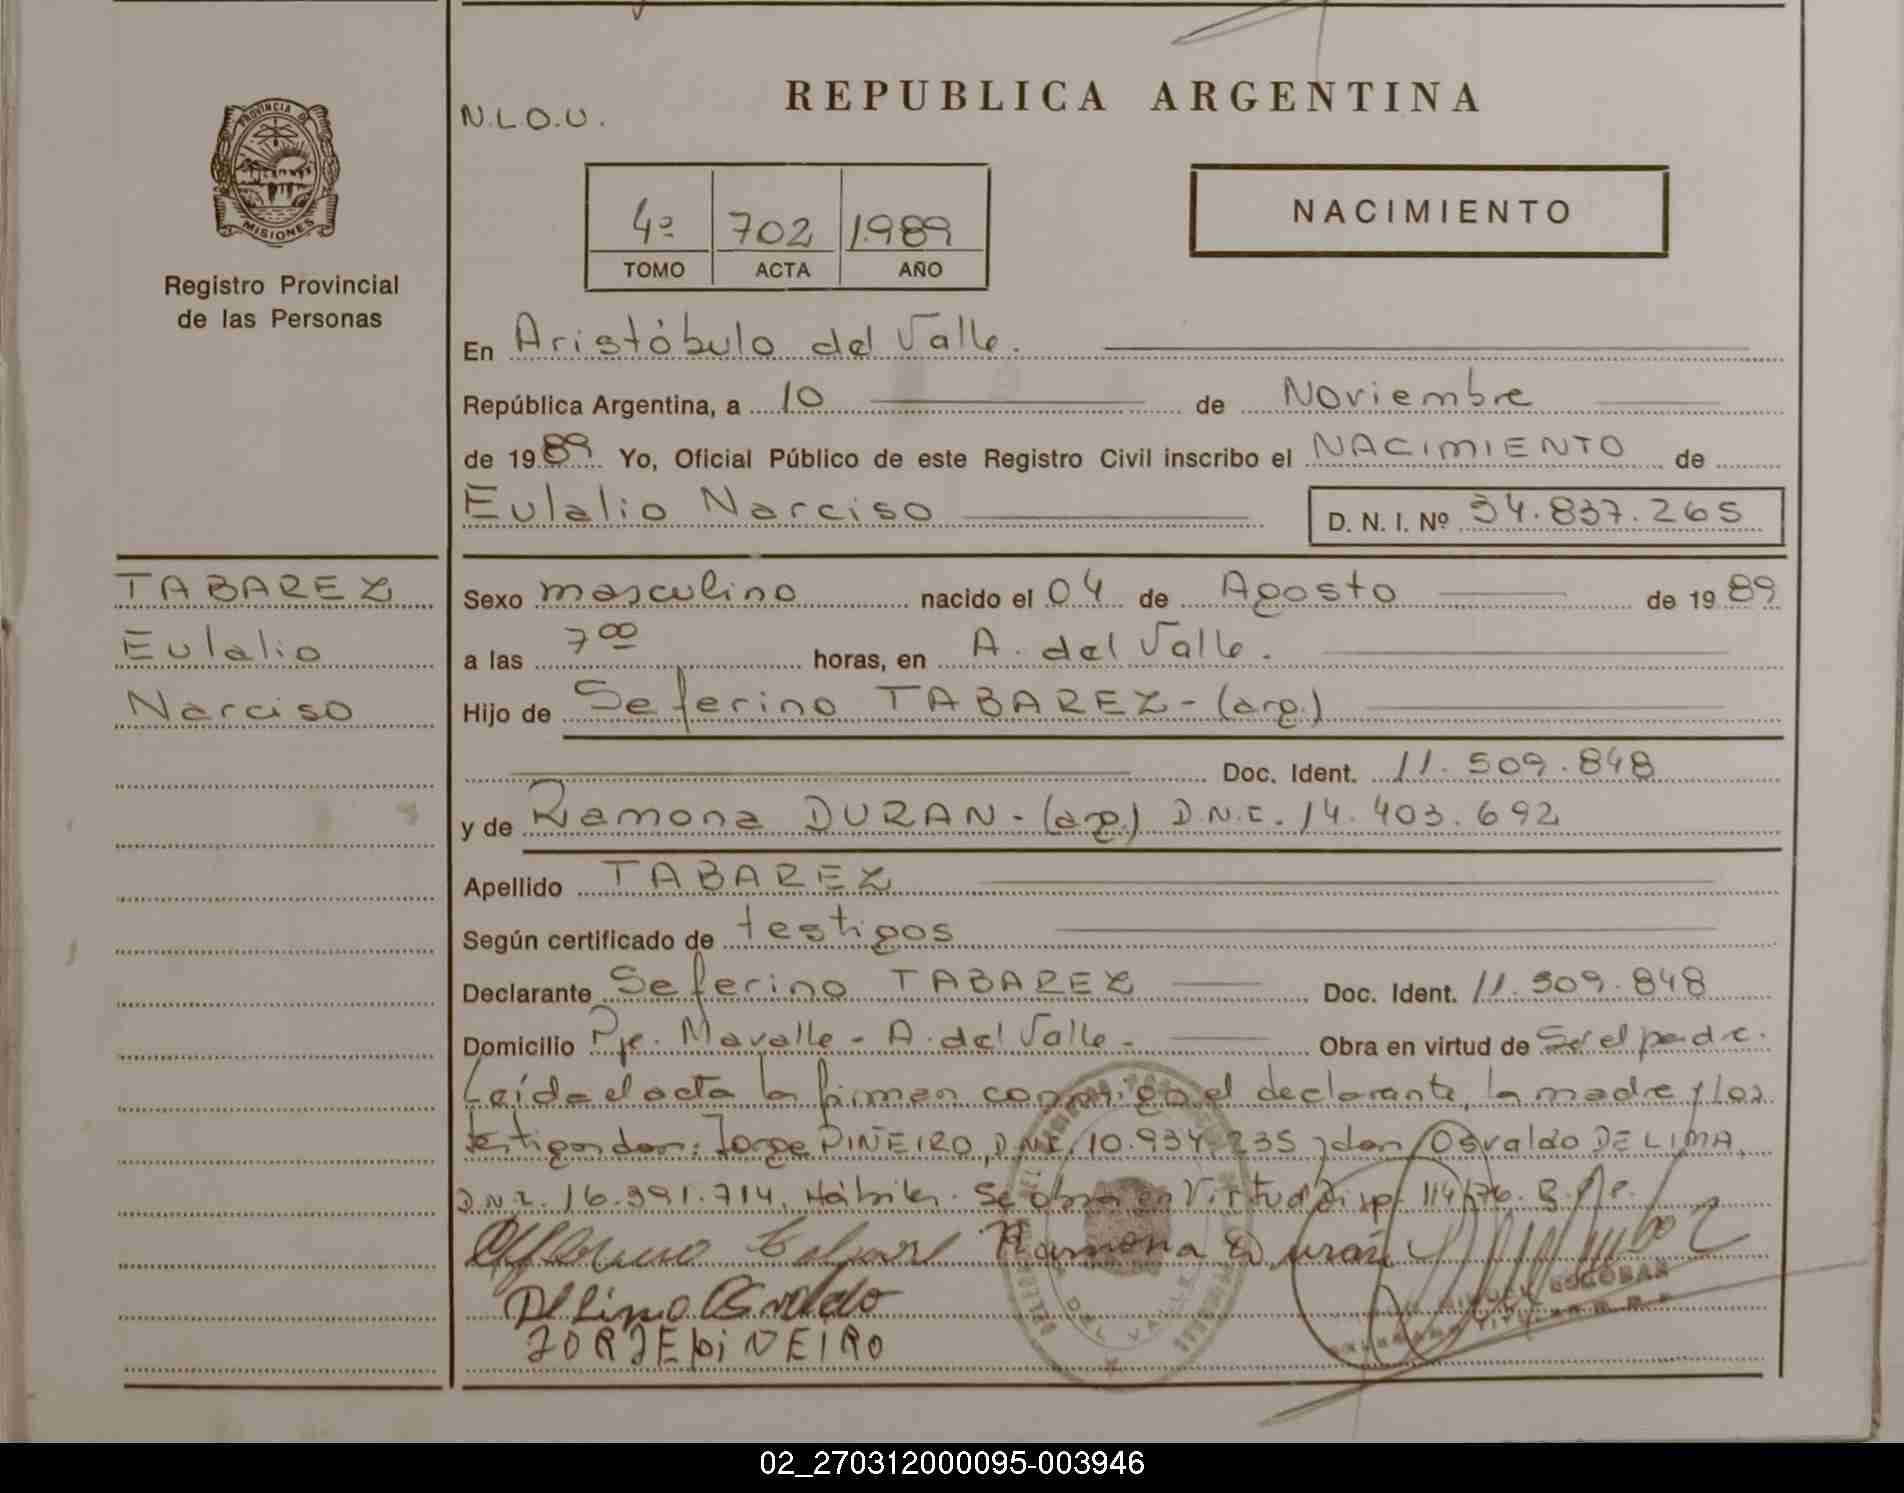 REPUBLICA ARGENTINA
N.L.O.U.
PROVINCIA DE
MISIONES
Registro Provincial
de las Personas
4º 702 1989
TOMO ACTA AÑO
NACIMIENTO
En Aristóbulo del Valle.
República Argentina, a 10 de Noviembre
de 1989 Yo, Oficial Público de este Registro Civil inscribo el NACIMIENTO de
Eulalio Narciso D. N. I. Nº 34.837.265
TABAREZ
Eulalio
Narciso
Sexo masculino nacido el 04 de Agosto de 1989
a las 7 00 horas, en A. del Valle.
Hijo de Seferino TABAREZ - (arg.)
Doc. Ident. 11.509.848
y de Ramona DURAN - (arg.) D.N.I. 14.403.692
Apellido TABAREZ
Según certificado de testigos
Declarante Seferino TABAREZ Doc. Ident. 11.509.848
Domicilio Pje. Mavalle - A. del Valle - Obra en virtud de Ser el padre.
Leída el acta la firman conmigo el declarante, la madre y los
testigos don: Jorge PIÑEIRO, D.N.I. 10.934.235 y don Osvaldo DE LIMA,
D.N.I. 16.391.714, Hábiles. Se obra en Virtud Disp. 114/76.
Ramona Duran
De Lima Osvaldo
JORJE PiNEIRO
DEL VALLE
MIGUEL ESCOBAR
02_270312000095-003946